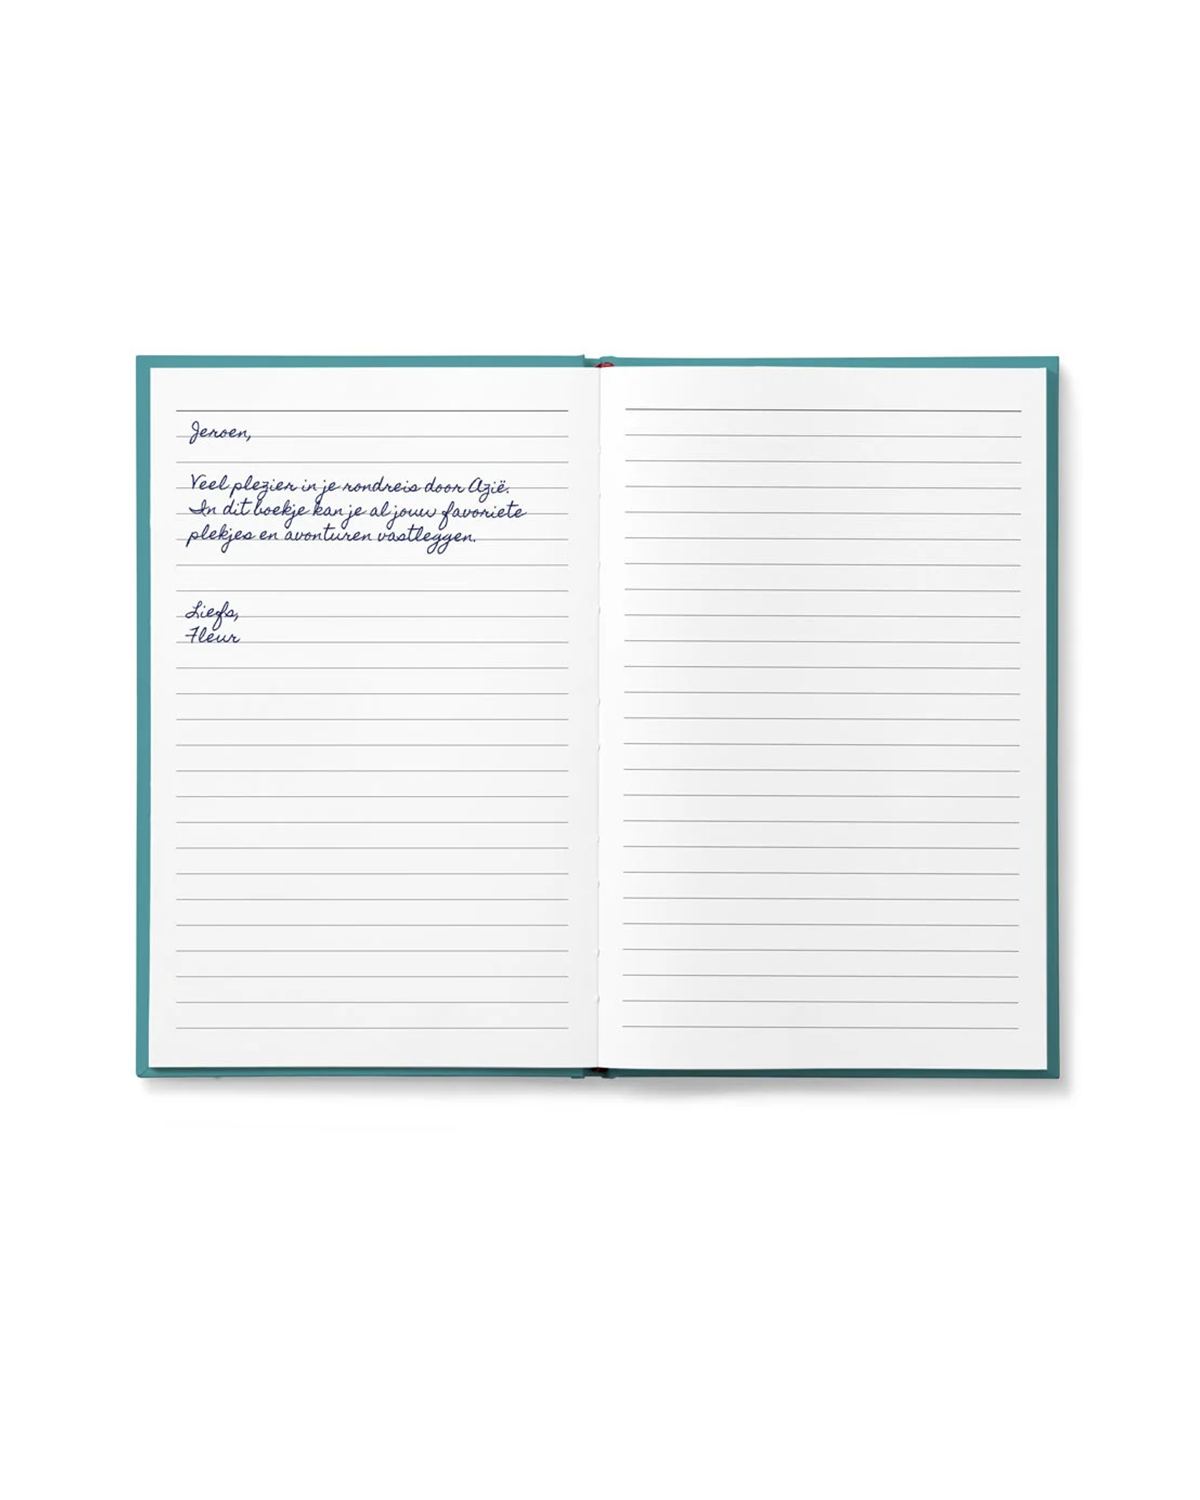 Jeroen,
Veel plezier in je rondreis door Azië.
In dit boekje kan je al jouw favoriete
plekjes en avonturen vastleggen.
Liefs,
Fleur